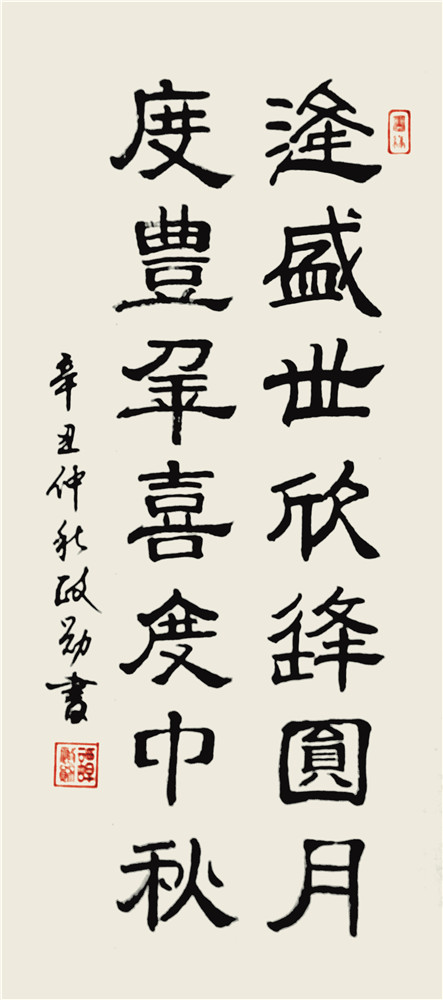 逢盛世欣逢圓月
度豐年喜度中秋
辛丑仲秋政勛書